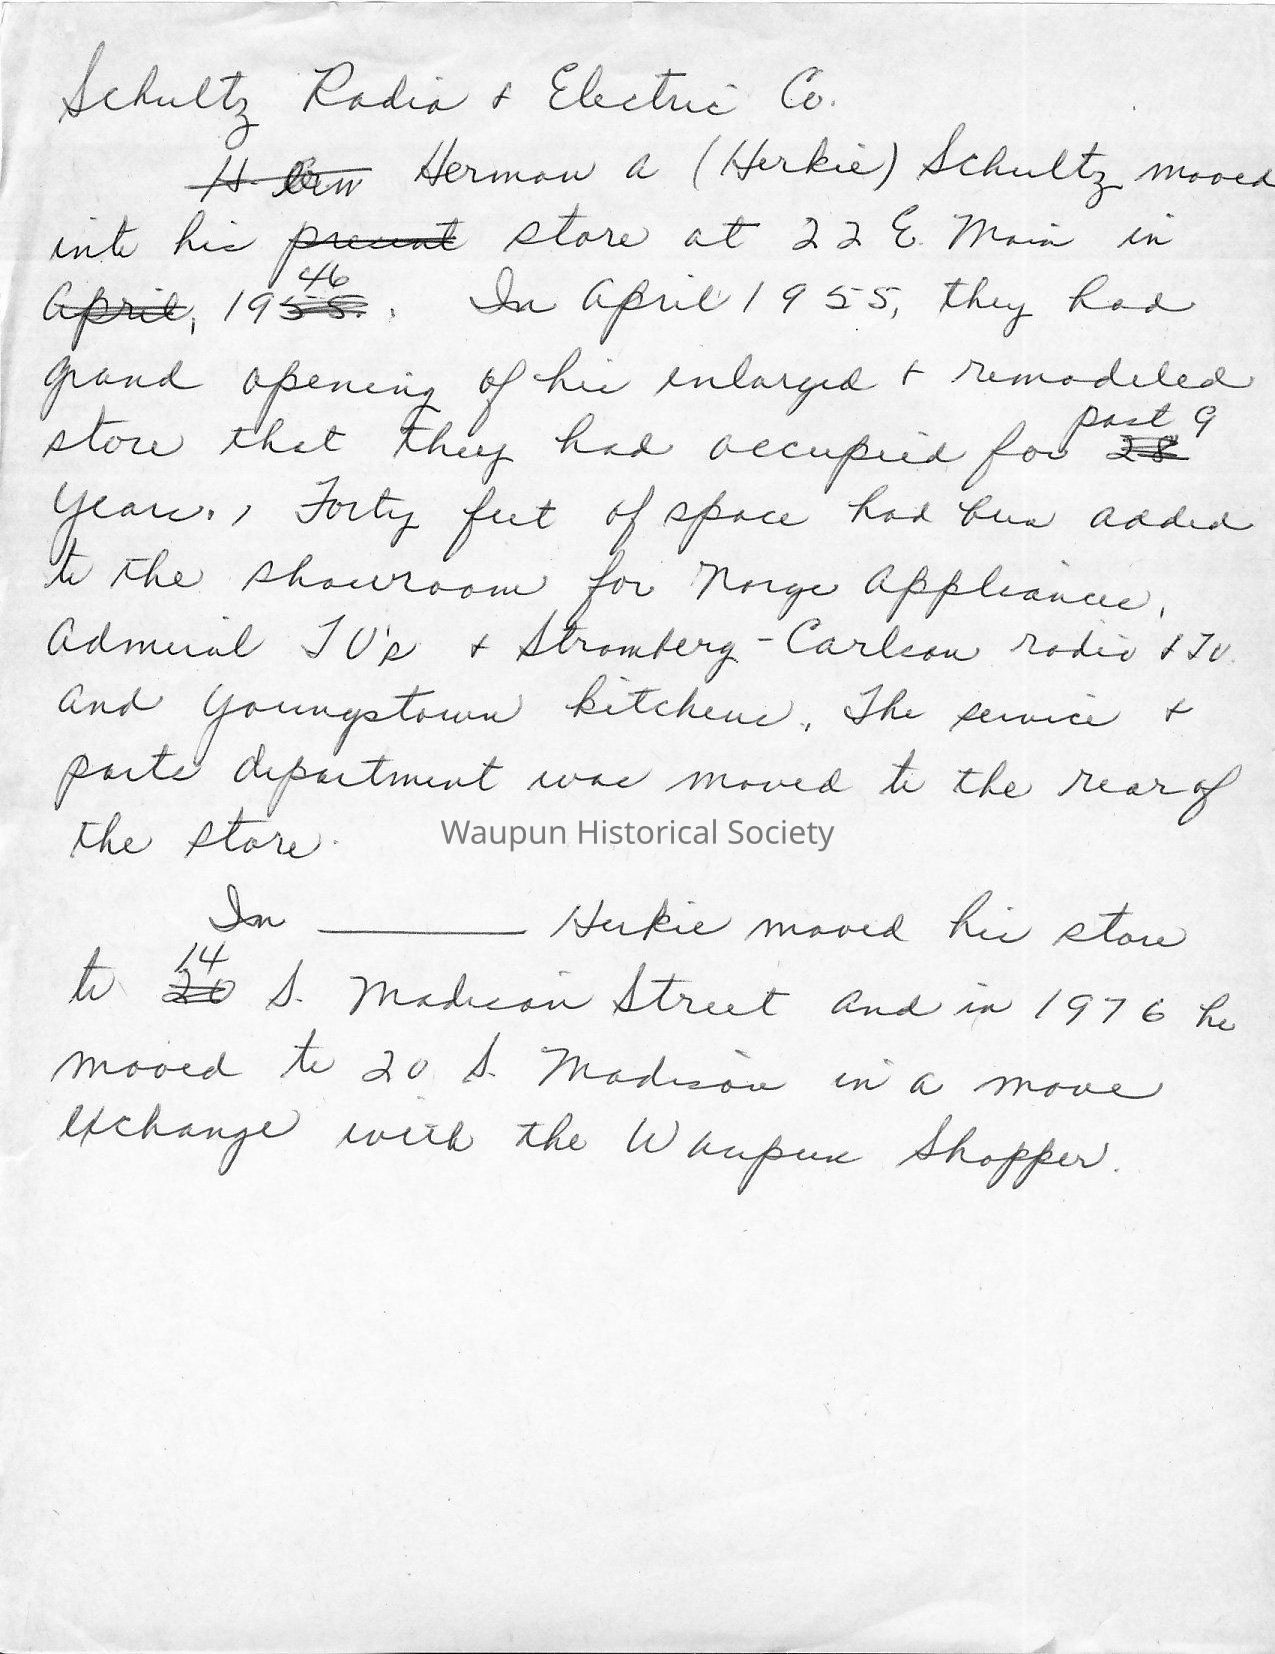 Schultz Radio & Electric Co.
H. Herman A (Herkie) Schultz moved
into his present store at 22 E. Main in
April, 1955. 46 In April 1955, they had
grand opening of his enlarged & remodeled
store that they had occupied for 28 past 9
years., Forty feet of space had been added
to the showroom for Norge Appliances,
Admiral TV's & Stromberg-Carlson radio & TV
and Youngstown kitchens. The service &
parts department was moved to the rear of
the store.
Waupun Historical Society
In ______ Herkie moved his store
to 20 14 S. Madison Street and in 1976 he
moved to 20 S. Madison in a move
exchange with the Waupun Shopper.